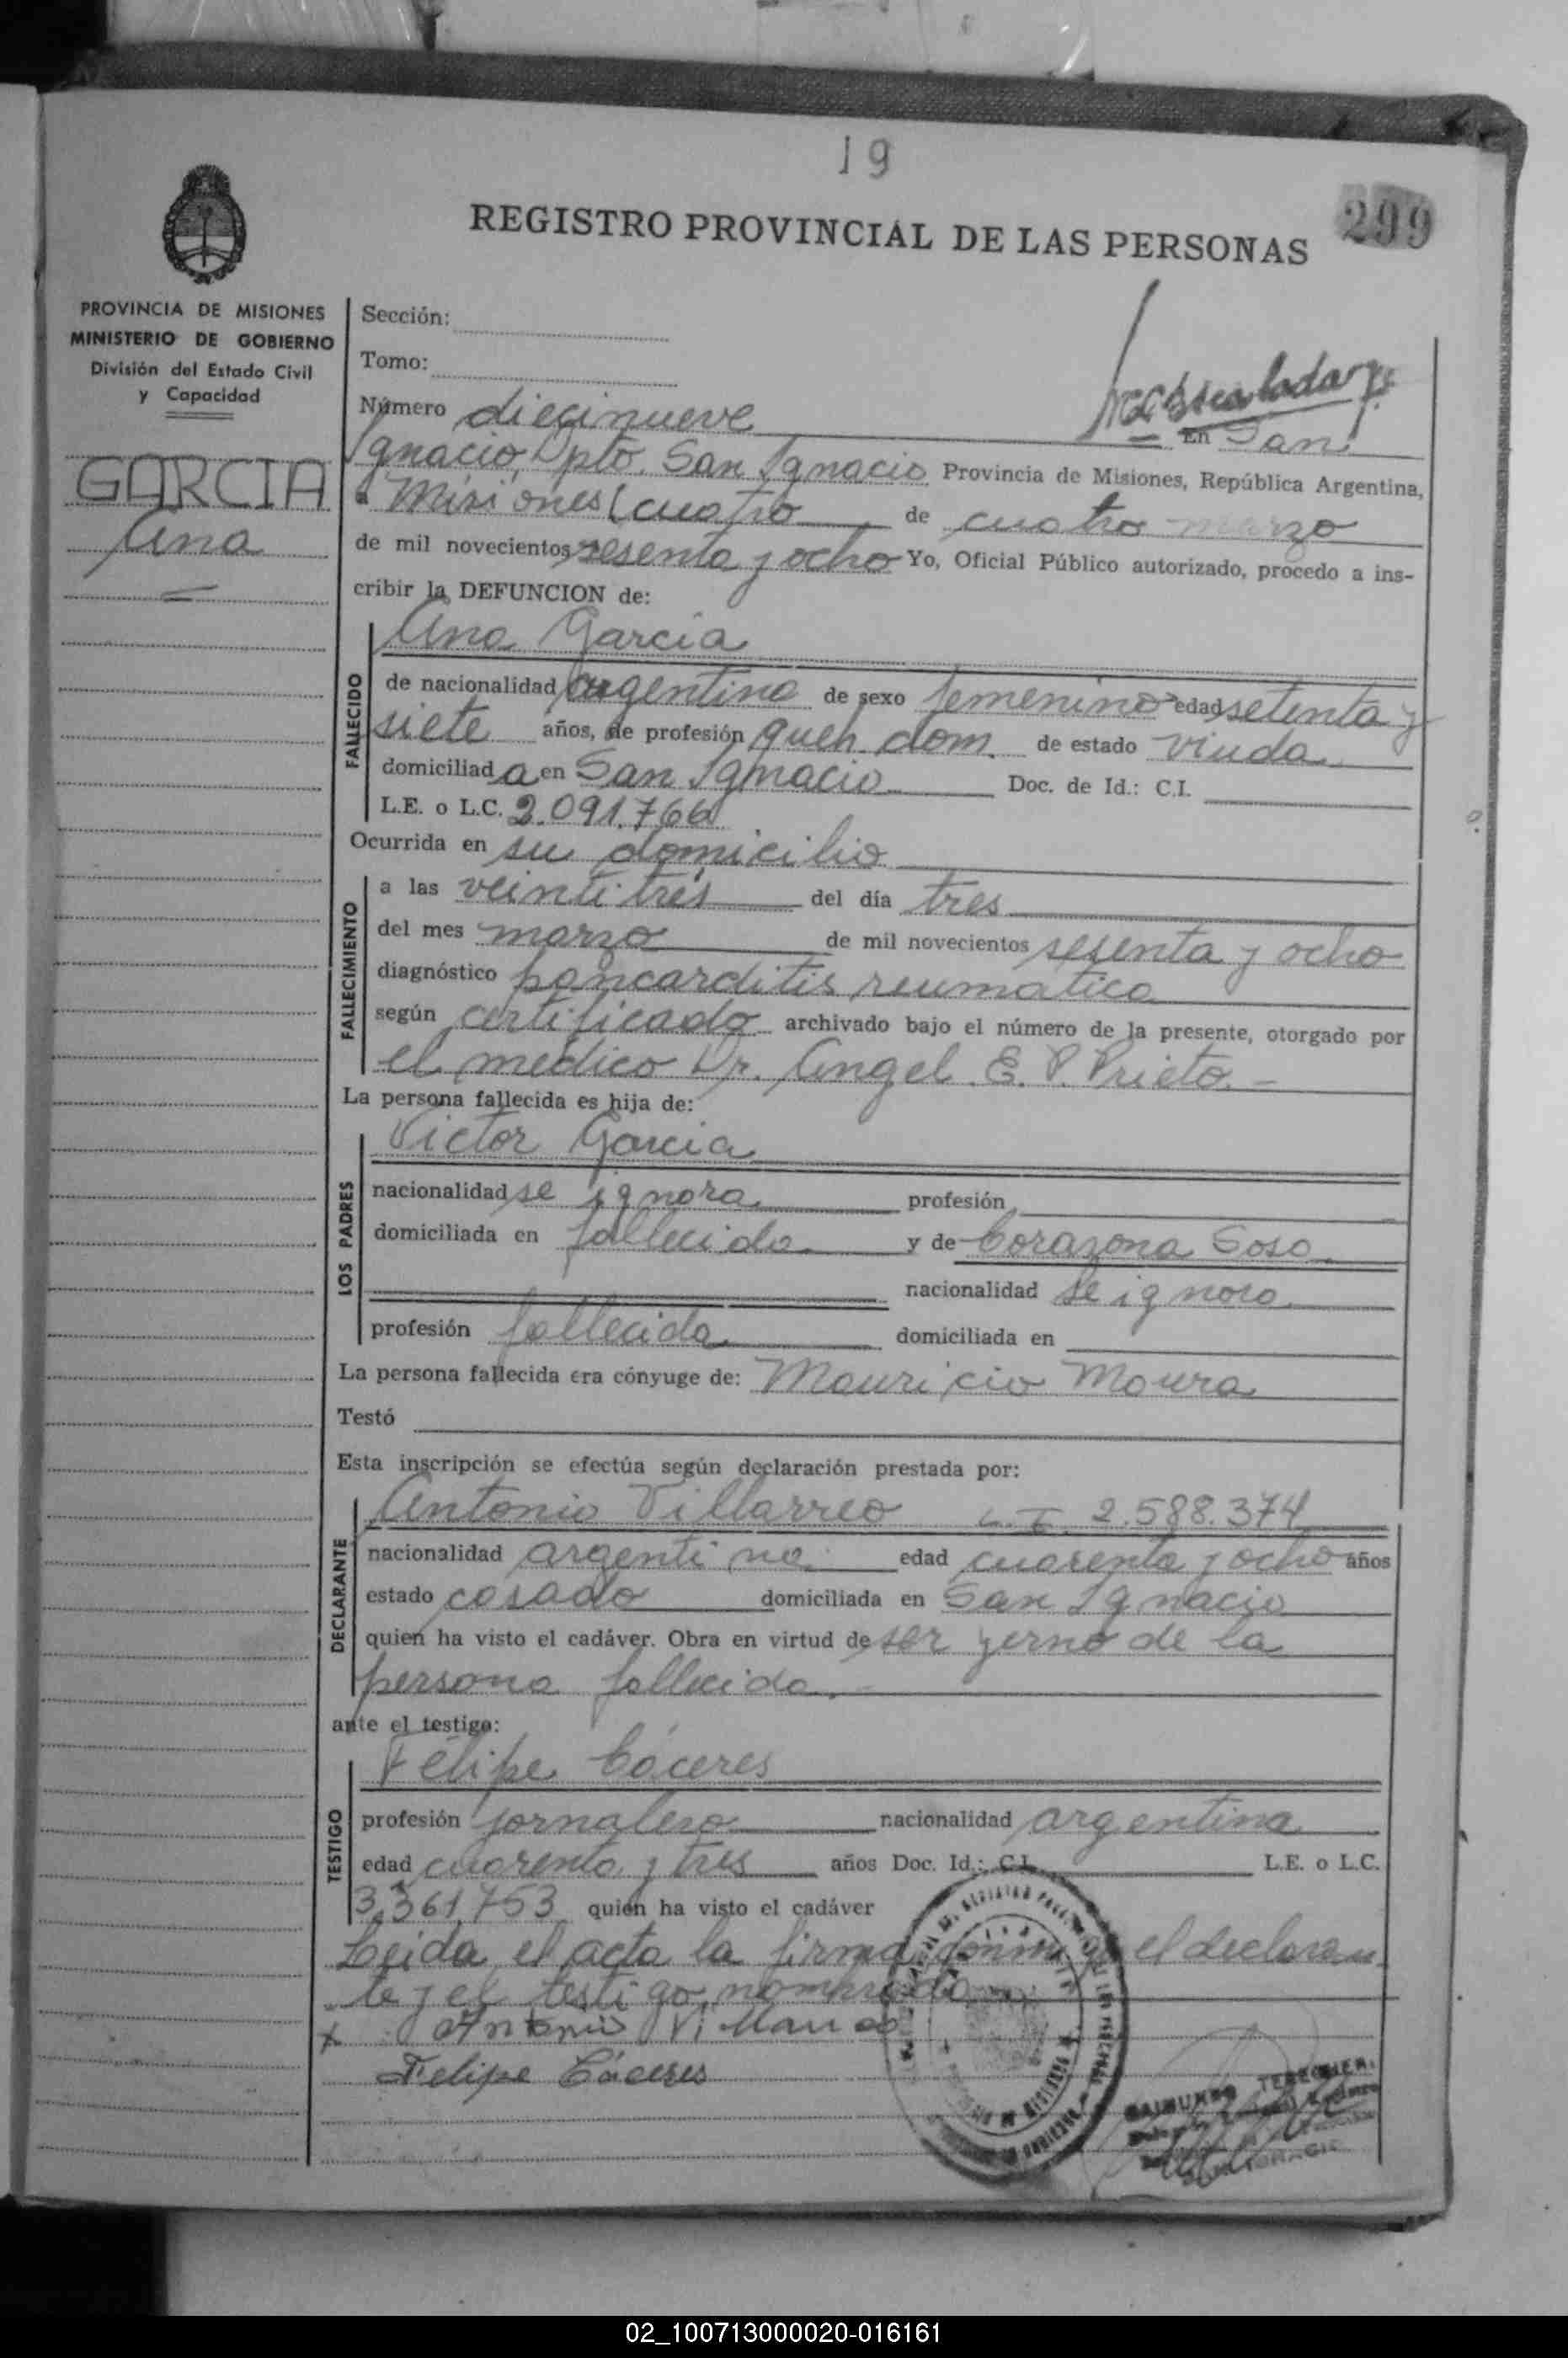 19
299
REGISTRO PROVINCIAL DE LAS PERSONAS
PROVINCIA DE MISIONES
MINISTERIO DE GOBIERNO
División del Estado Civil
y Capacidad
GARCIA
Ana
Sección:
Tomo:
Número diecinueve En San
Ignacio, Dpto. San Ignacio Provincia de Misiones, República Argentina,
a Misiones (cuatro de cuatro marzo
de mil novecientos sesenta y ocho Yo, Oficial Público autorizado, procedo a ins-
cribir la DEFUNCION de:
FALLECIDO
Ana Garcia
de nacionalidad argentina de sexo femenino edad setenta y
siete años, de profesión queh. dom. de estado viuda
domiciliada en San Ignacio Doc. de Id.: C.I.
L.E. o L.C. 2.091.766
Ocurrida en su domicilio
FALLECIMIENTO
a las veinti trés del día tres
del mes marzo de mil novecientos sesenta y ocho
diagnóstico pancarditis reumatica
según certificado archivado bajo el número de la presente, otorgado por
el médico Dr. Angel E. P. Prieto.-
La persona fallecida es hija de:
LOS PADRES
Victor Garcia
nacionalidad se ignora profesión
domiciliada en fallecido y de Corazona Soso
nacionalidad se ignora
profesión fallecida domiciliada en
La persona fallecida era cónyuge de: Mauricio Moura
Testó
Esta inscripción se efectúa según declaración prestada por:
DECLARANTE
Antonio Villarreo L.I. 2.588.374
nacionalidad argentina edad cuarenta y ocho años
estado casado domiciliada en San Ignacio
quien ha visto el cadáver. Obra en virtud de ser yerno de la
persona fallecida.-
ante el testigo:
TESTIGO
Felipe Cáceres
profesión jornalero nacionalidad argentina
edad cuarenta y tres años Doc. Id.: C.I. L.E. o L.C.
3.361.753 quien ha visto el cadáver
Leida el acta la firma conmigo el declaran
te y el testigo nombrado
x Antonio
Felipe Cáceres
02_100713000020-016161